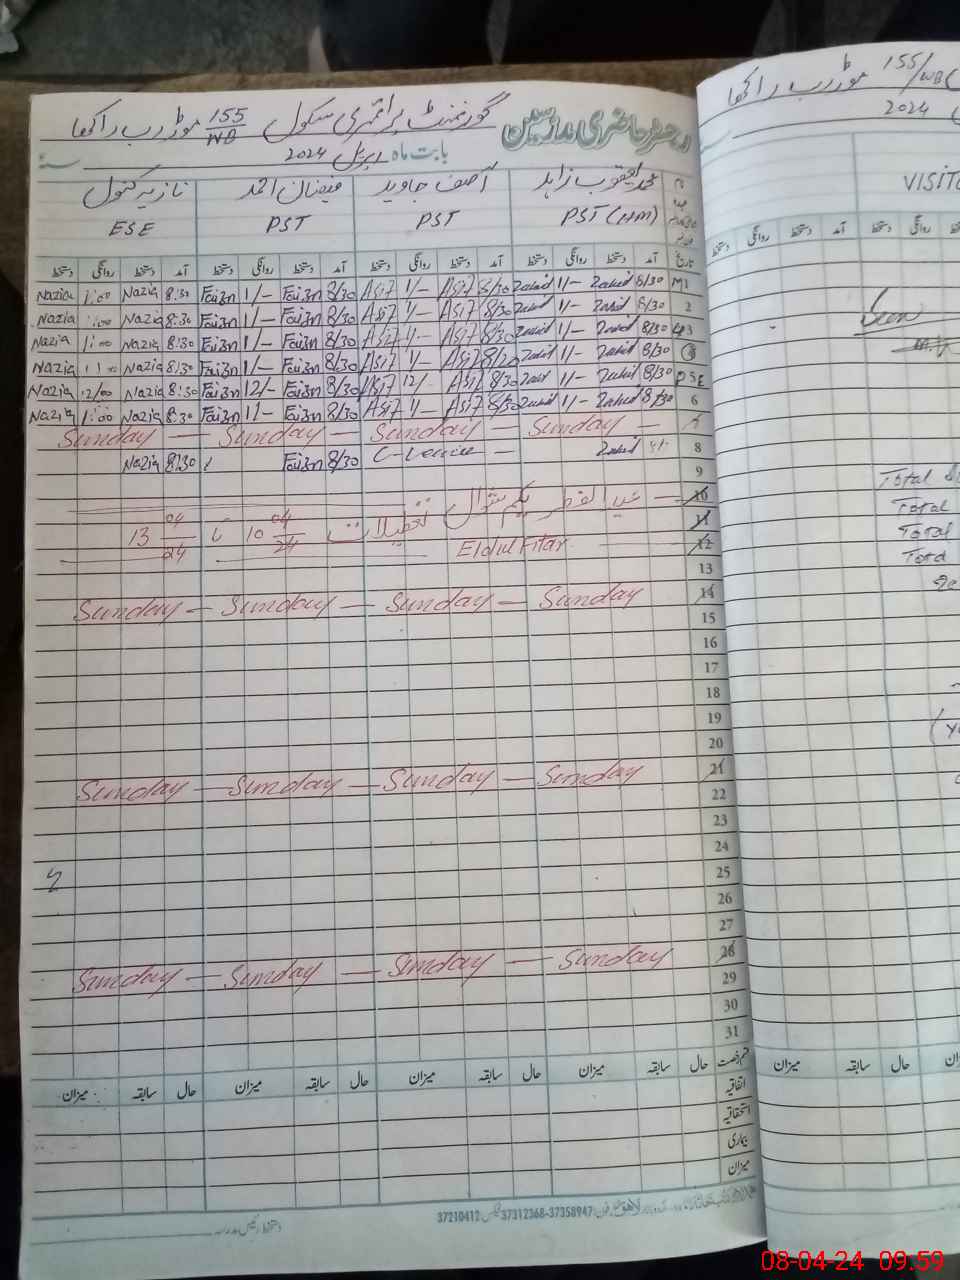 رجسٹر حاضری مدرسین گورنمنٹ پرائمری سکول 155/WB موڑ رب راکھا
بابت ماہ اپریل 2024 سنہ
نام محمد یعقوب زاہد آصف جاوید فیضان احمد نازیہ کنول
PST (HM) PST PST ESE
تاریخ آمد دستخط روانگی دستخط آمد دستخط روانگی دستخط آمد دستخط روانگی دستخط آمد دستخط روانگی دستخط
Nazia 1:00 Nazia 8:30 Faizn 1/- Faizn 8/30 Asif 1/- Asif 8/30 Zahid 1/- Zahid 8/30 M1
Nazia 1:00 Nazia 8:30 Faizn 1/- Faizn 8/30 Asif 1/- Asif 8/30 Zahid 1/- Zahid 8/30 2
Nazia 1:00 Nazia 8:30 Faizn 1/- Faizn 8/30 Asif 1/- Asif 8/30 Zahid 1/- Zahid 8/30 3
Nazia 1:00 Nazia 8:30 Faizn 1/- Faizn 8/30 Asif 1/- Asif 8/30 Zahid 1/- Zahid 8/30
Nazia 12/00 Nazia 8:30 Faizn 12/- Faizn 8/30 Asif 12/- Asif 8/30 Zahid 1/- Zahid 8/30 5
Nazia 1:00 Nazia 8:30 Faizn 1/- Faizn 8/30 Asif 1/- Asif 8/30 Zahid 1/- Zahid 8/30 6
Sunday — Sunday — Sunday — Sunday — 7
Nazia 8:30 Faizn 8/30 C-Leave — Zahid 8
9
عید الفطر یکم شوال تعطیلات 10 04/24 تا 13 04/24 10
11
Eidul Fitar 12
13
Sunday — Sunday — Sunday — Sunday 14
15
16
17
18
19
20
Sunday — Sunday — Sunday — Sunday 21
22
23
24
25
26
27
Sunday — Sunday — Sunday — Sunday 28
29
30
31
قسم رخصت حال سابقہ میزان حال سابقہ میزان حال سابقہ میزان حال سابقہ میزان
اتفاقیہ
استحقاقیہ
بیماری
میزان
لاہور فون: 37358947-37312368 فیکس: 37210412
دستخط رئیس مدرسہ
موڑ رب راکھا 155/WB
2024
VISITO
دستخط روانگی دستخط آمد دستخط روانگی
Seen
Total
Total
Total
Total
حال سابقہ میزان
08-04-24 09:59